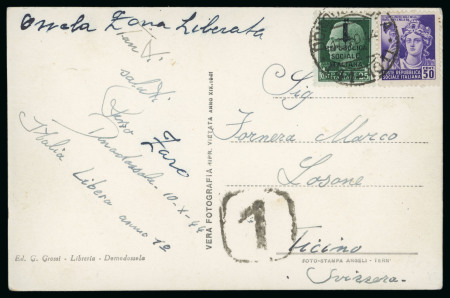 Ossola Zona Liberata
Tanti
saluti
Zaro
Domodossola - 10-X-44
Italia Libera anno 1º
Ed. G. Grossi - Libreria - Domodossola
VERA FOTOGRAFIA - RIPR. VIETATA ANNO XIX, 1941
1
REPUBBLICA
SOCIALE
ITALIANA
REPUBBLICA
SOCIALE ITALIANA
50
Sig.
Fornera Marco
Losone
Ticino
FOTO-STAMPA ANGELI - TERNI
Svizzera